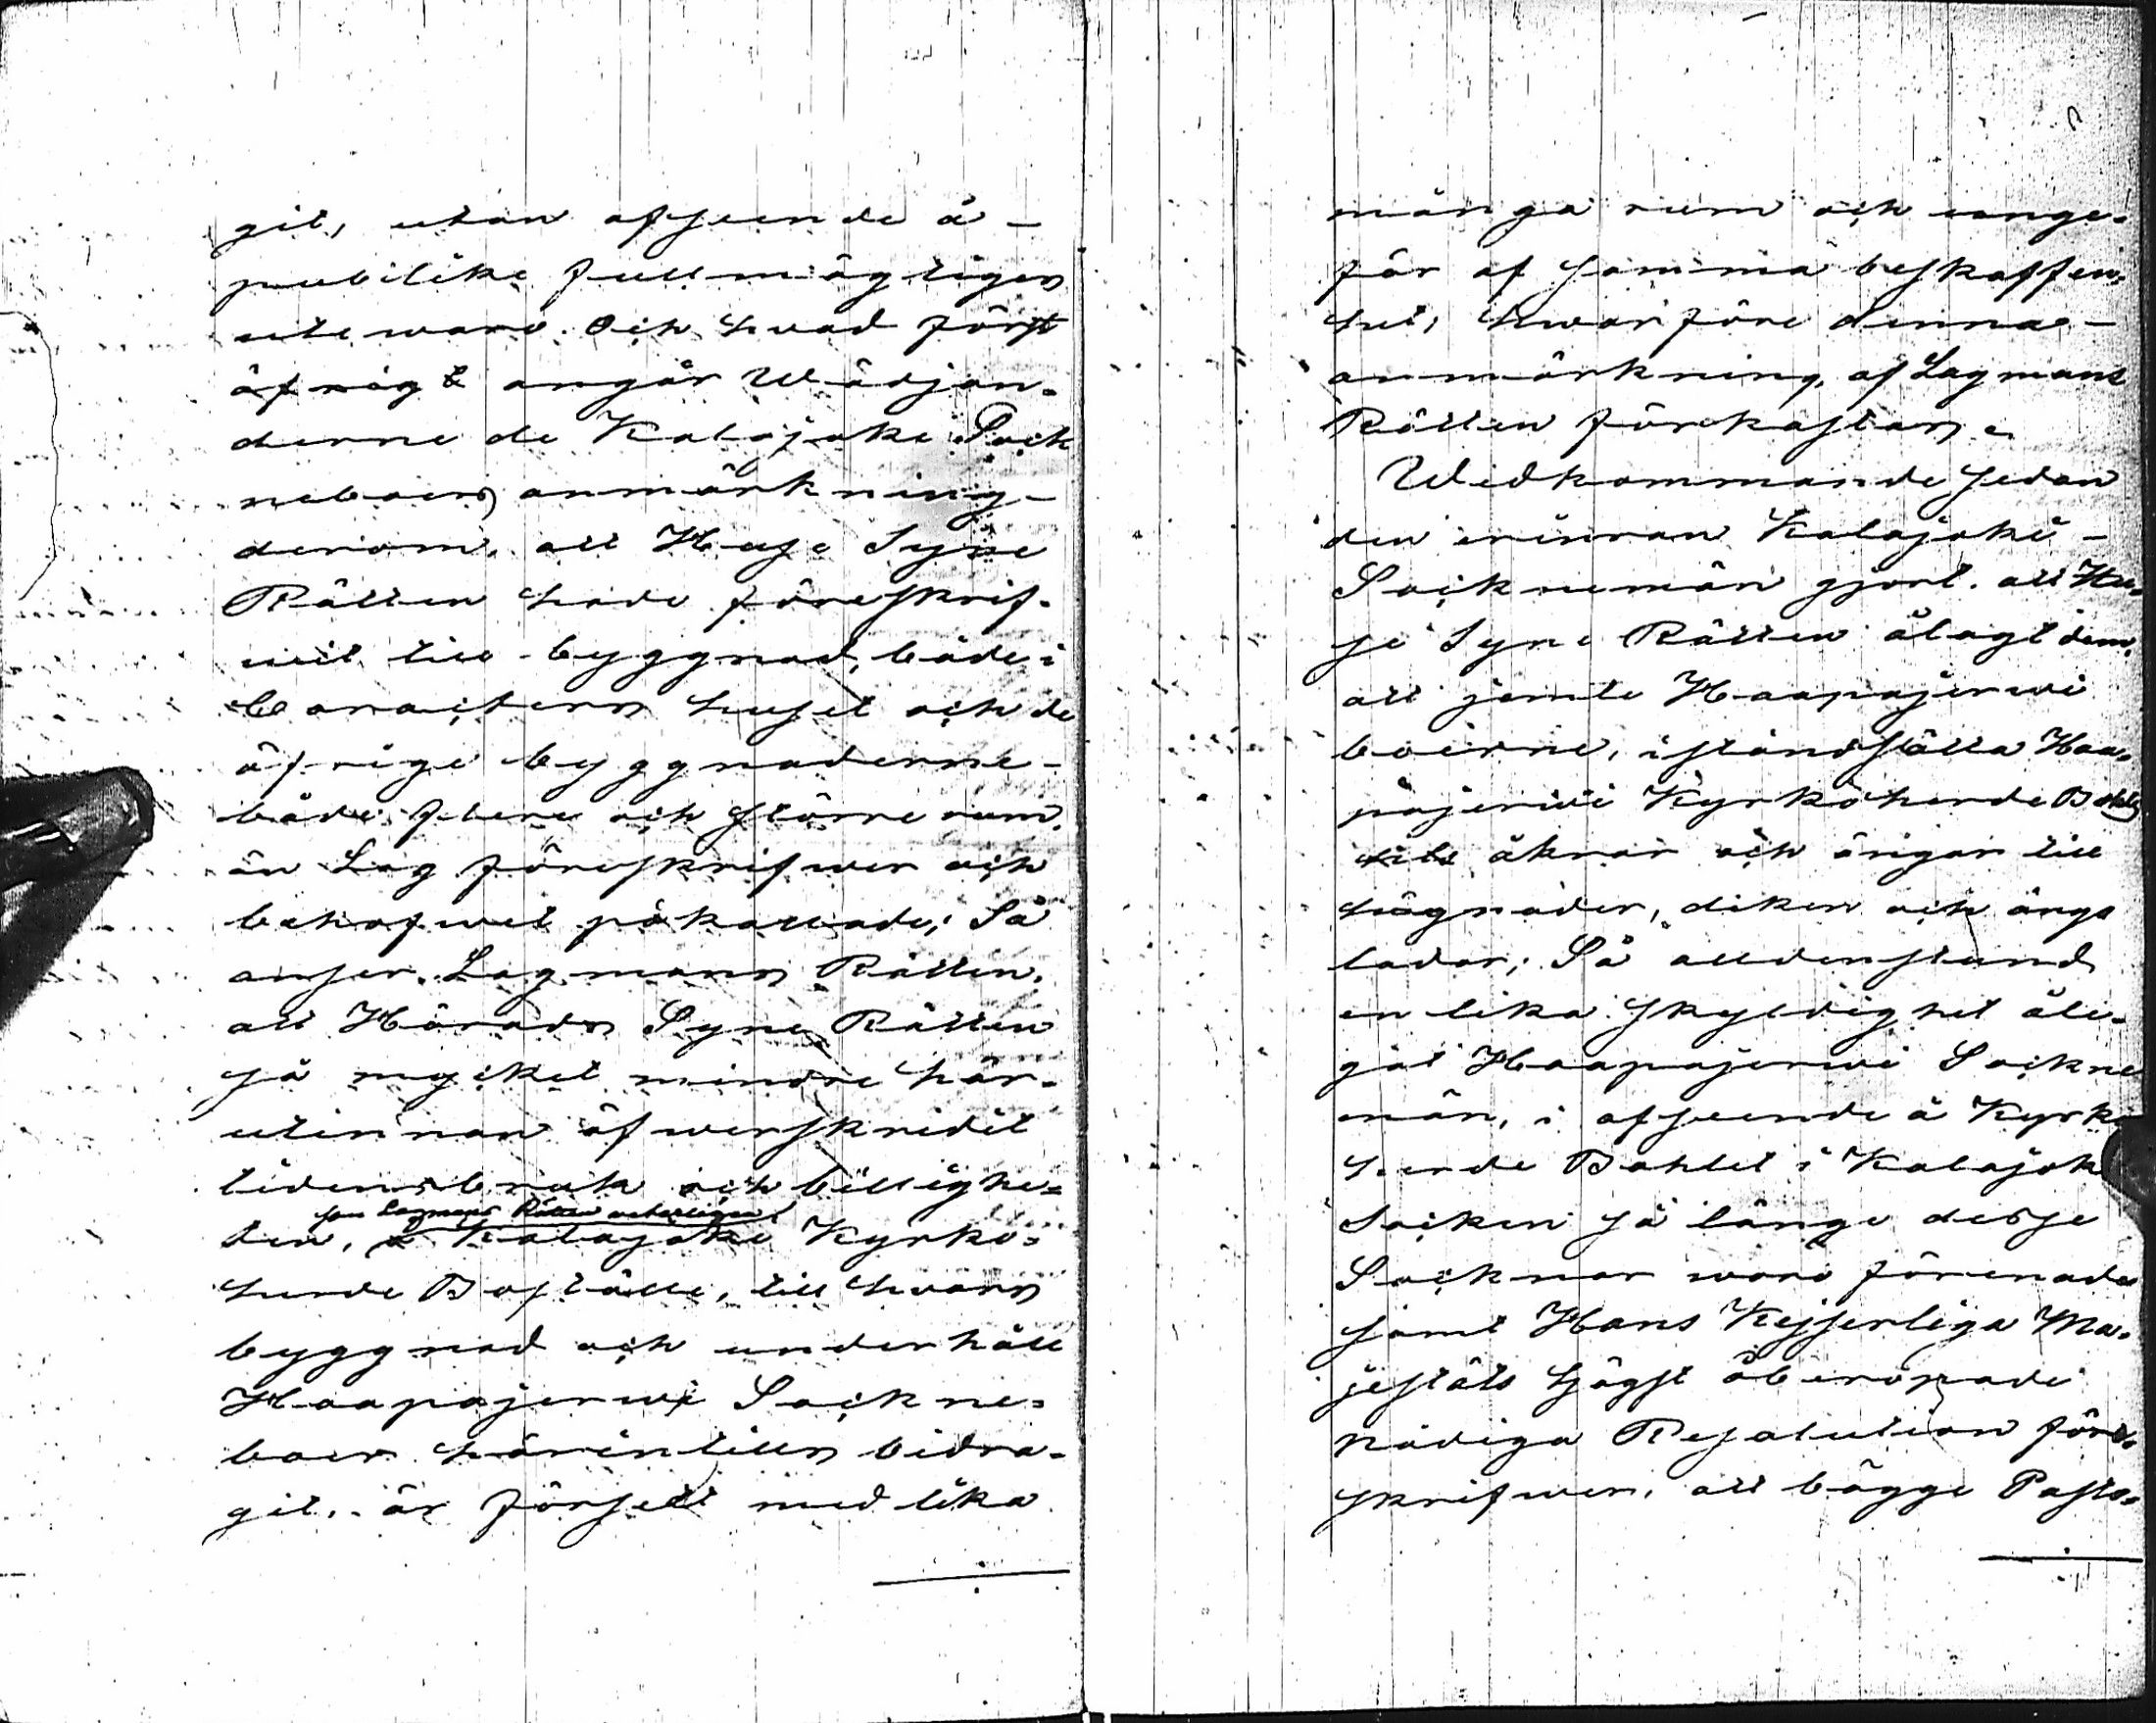 git, utan afseende å –
publike fullmägtigens
utewaro. Och hwad först
öfrigt angår Wädjan-
derne de Kalajoki Sock
neboers anmärkning –
derom, att Huse Syne
Rätten hade föreskrif-
wit till byggnad, både i
Caracters huset och de
öfrige byggnaderne –
både flere och större rum,
än Lag föreskrifwer och
behofwet påkallade; Så
anser Lagmans Rätten,
att Härads Syne Rätten
så mycket mindre här-
utinnan öfwerskridit
tidens bruk och billighe-
som Lagmans Rätten
ten, Kalajoki Kyrko-
herde Boställe, till hwars
byggnad och underhåll
Haapajerwi Sockne-
boer härintills bidra-
git, är försett med lika
många rum och unge-
fär af samma beskaffen-
het, hwarföre denna –
anmärkning, af Lagmans
Rätten förkastas.
Widkommande sedan
den erinran Kalajoki –
Socknemän gjort, att Hu-
se Syne Rätten ålagt dem,
att jemte Haapajerwi
boerne, iståndsätta Haa-
pajerwi Kyrkoherde Bohls
åkrar och ängar till
hägnader, diken och ängs
lador; Så alldenstund
en lika skyldighet åle-
gat Haapajerwi Sockne
män, i afseende å Kyrko
herde Bohlet i Kalajok
Socken så länge desse
Socknar woro förenade
samt Hans Kejserliga Ma-
jestäts högst åberopade
nådiga Resolution före-
skrifwer, att bägge Pasto-